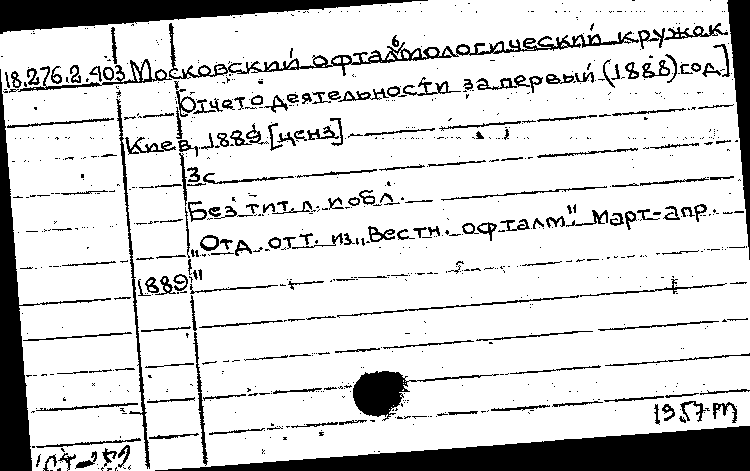 18.276.2.403 Московский офтальмологический кружок
Отчет о деятельности за первый (1888) год.]
Киев, 1889 [ценз]
3с
Без тит. л. и обл.
„Отд. отт. из „Вестн. офталм“. Март-апр.
1889"
1957-РП